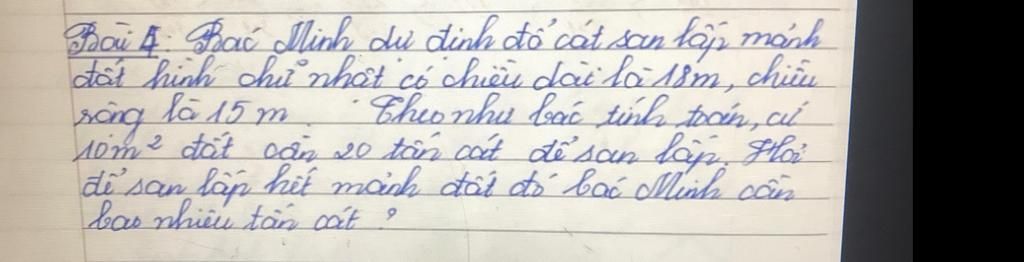 Bài 4. Bác Minh dự định đổ cát san lấp mảnh
đất hình chữ nhật có chiều dài là 18m, chiều
rộng là 15 m. Theo như bác tính toán, cứ
10m² đất cần 20 tấn cát để san lấp. Hỏi
để san lấp hết mảnh đất đó bác Minh cần
bao nhiêu tấn cát ?